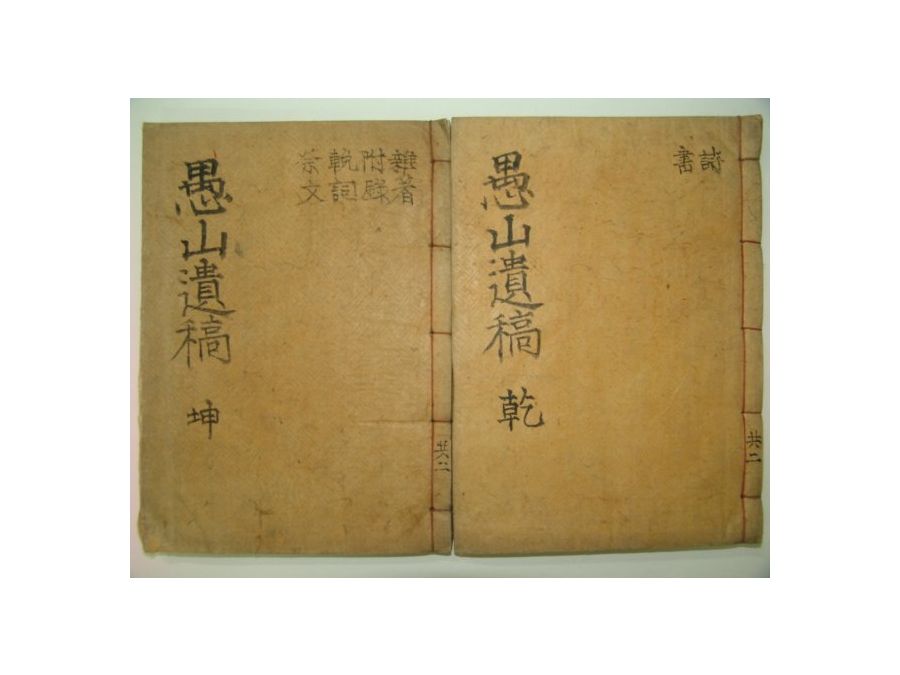 詩
書
愚山遺稿 乾
共二
雜著
附錄
輓詞
祭文
愚山遺稿 坤
共二